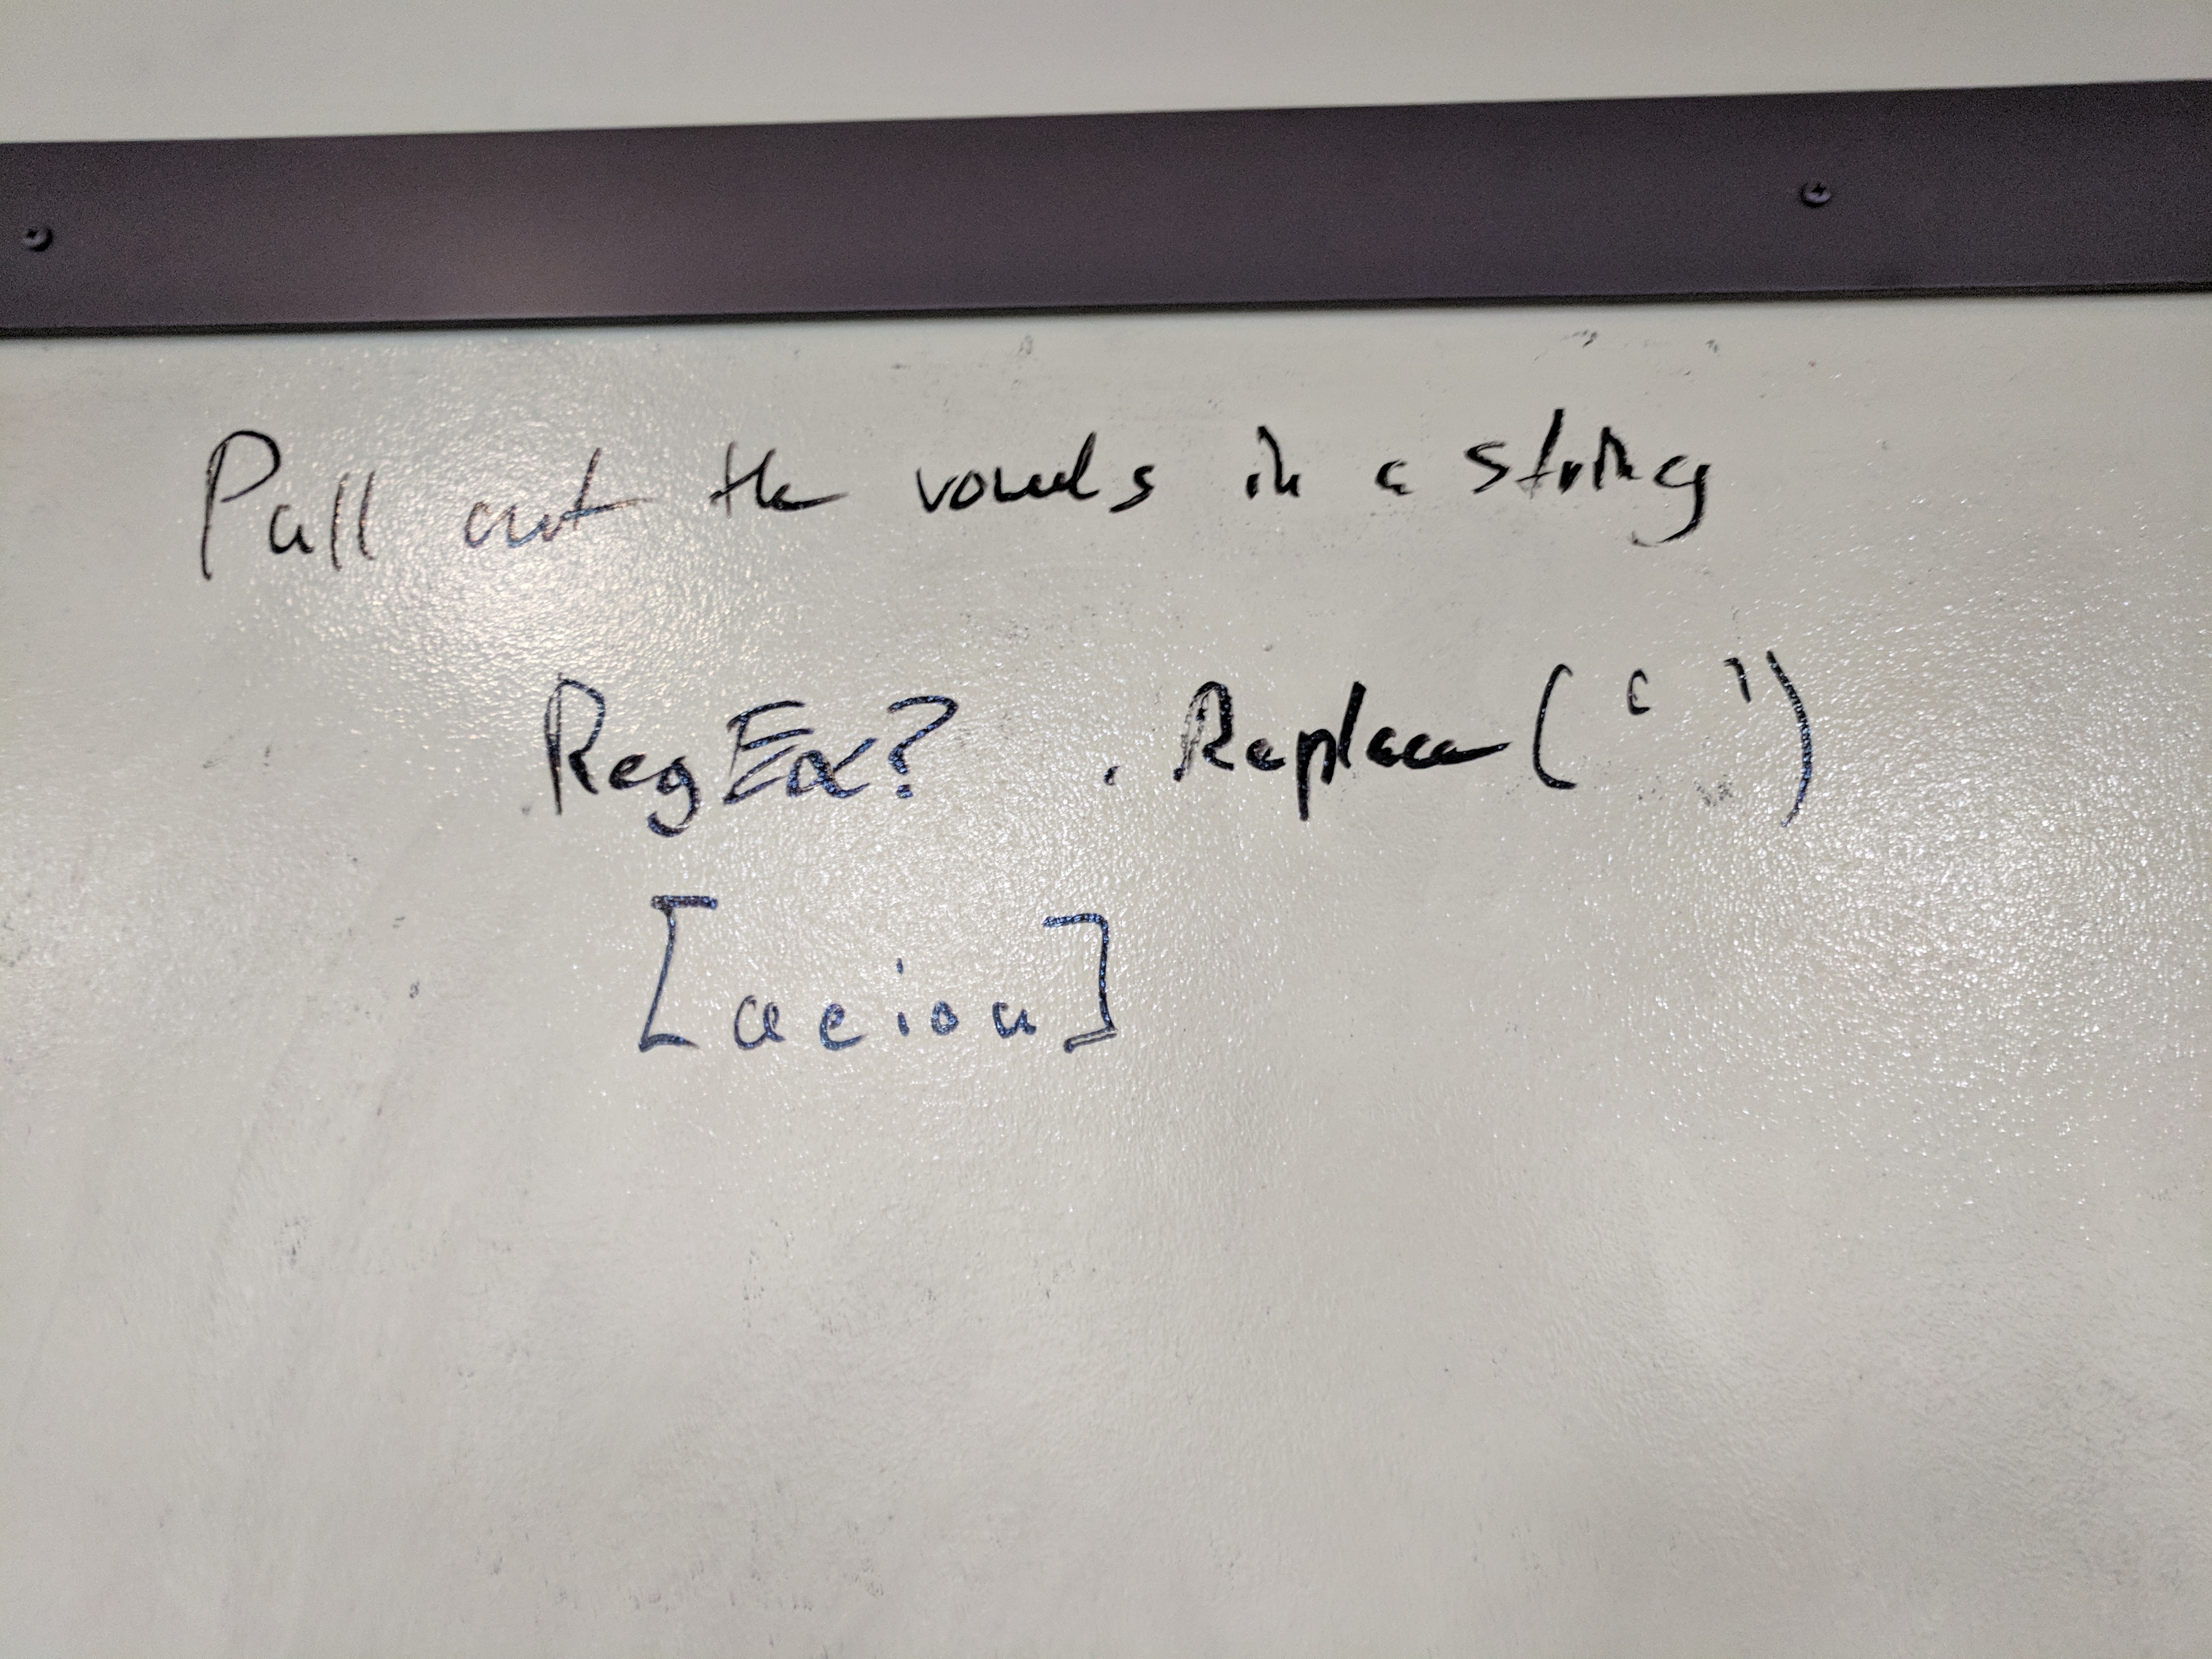 Pull out the vowels in a string
RegEx? .Replace(‘ ’)
[aeiou]